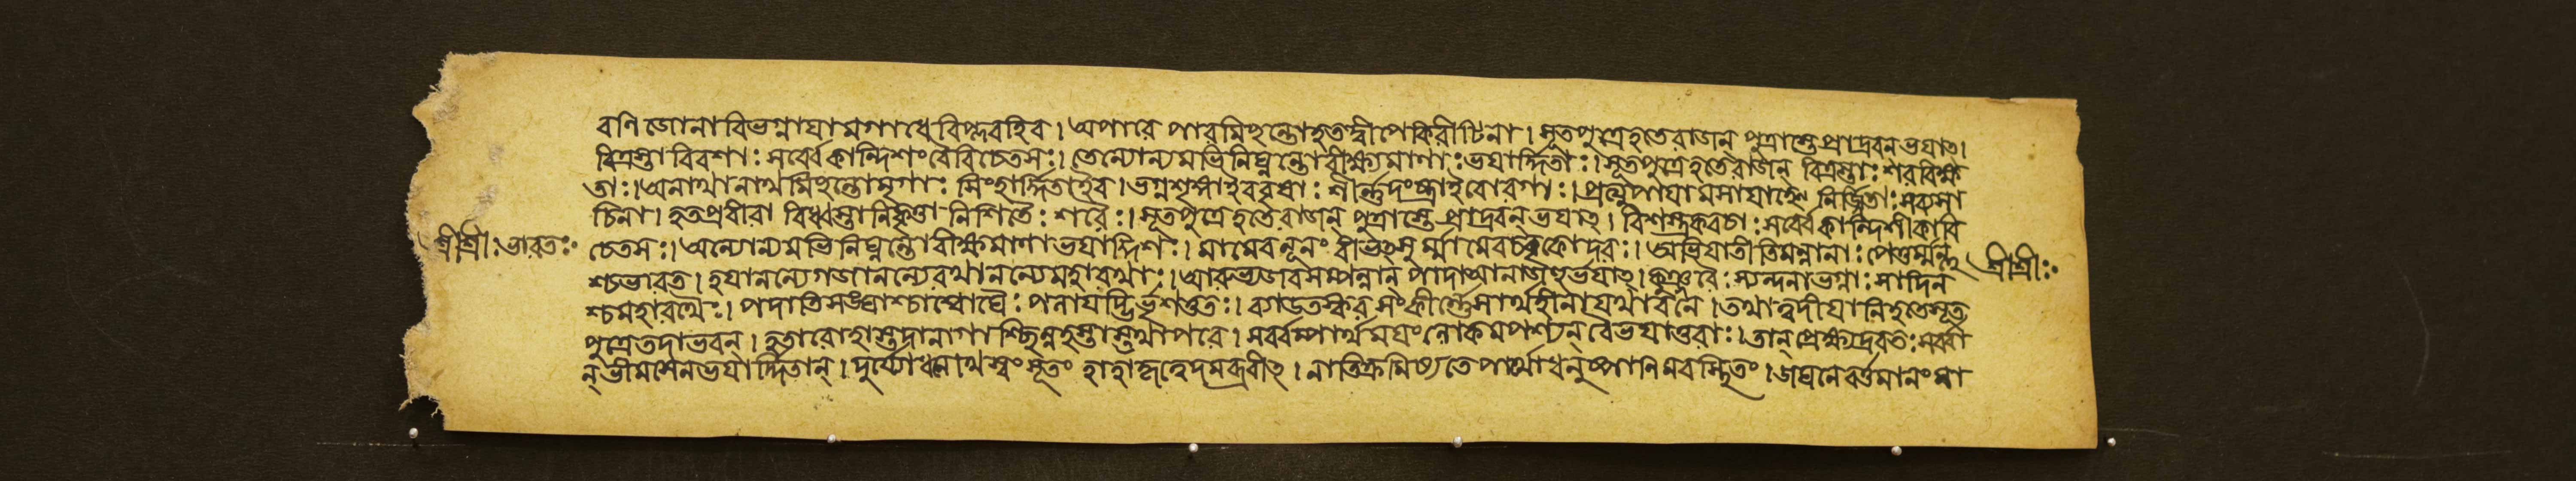 বণিজোনাবিভগ্নাযামগাধেবিপ্লবইব। অপারে পারমিছন্তোহতদ্বীপেকিরীটিনা। সূতপুত্রেহতেরাজন্ পুত্রাস্তেপ্রাদ্রবন্ভযাৎ।
বিত্রস্তা বিবশাঃ সর্ব্বেকান্দিশংবৈবিচেতসঃ। তেন্যোন্যমভিনিঘ্নন্তোবীক্ষ্যমাণাঃভযার্দ্দিতাঃ। সূতপুত্রেহতেরাজন্ বিত্রস্তাঃশরবিক্ষ
তাঃ। অনাথানাথমিছন্তোমৃগাঃ সিংহার্দ্দিতাইব। ভগ্নশৃঙ্গাইববৃষাঃ শীর্ন্নদংষ্ট্রাইবোরগাঃ। প্রত্যুপাযামসাযাহ্নে নির্জ্জিতাঃসব্যসা
চিনা। হতপ্রবীরা বিধ্বস্তানিকৃত্তা নিশিতৈঃ শরৈঃ। সূতপুত্রেহতেরাজন্ পুত্রাস্তেপ্রাদ্রবন্ভযাৎ। বিশস্ত্রকবচাঃসর্ব্বেকান্দিশীকাবি
শ্রীশ্রীঃভারতঃ চেতসঃ। অন্যোন্যমভিনিঘ্নন্তোবীক্ষমাণাভযাদ্দিশঃ। মামেবনূনং বীভৎসুর্ম্মামেবচবৃকোদরঃ। অভিযাতীতিমন্বানাঃপেতুর্ম্মম্লু শ্রীশ্রীঃ
শ্চভারত। হযানন্যেগজানন্যেরথানন্যেমহারথাঃ। আরুহ্যজবসম্পন্নান্ পাদাতানাজহুর্ভযাৎ। কুঞ্জরৈঃ স্যন্দনাভগ্নাঃ সাদিন
শ্চমহারথৈঃ। পদাতিসঙ্ঘাশ্চাশ্বৌঘৈঃ পলাযদ্ভির্ভৃশংহতাঃ। ব্যাডতস্করসংকীর্ন্নেসার্থহীনাযথাবনে। তথাত্বদীযানিহতেসূত
পুত্রেতদাভবন্। হতারোহাস্তদানাগাশ্ছিন্নহস্তাস্তথাপরে। সর্ব্বম্পার্থমযংলোকমপশ্যন্ বৈভযাতুরাঃ। তান্প্রেক্ষ্যদ্রবতঃসর্ব্বা
ন্ ভীমসেনভযার্দ্দিতান্। দুর্য্যোধনোথস্বংসূতং হাহাকৃত্বেদমব্রবীৎ। নাতিক্রমিষ্যতেপার্থোধনুষ্পাণিমবস্থিতং। জঘনেবর্ত্তমানংমা